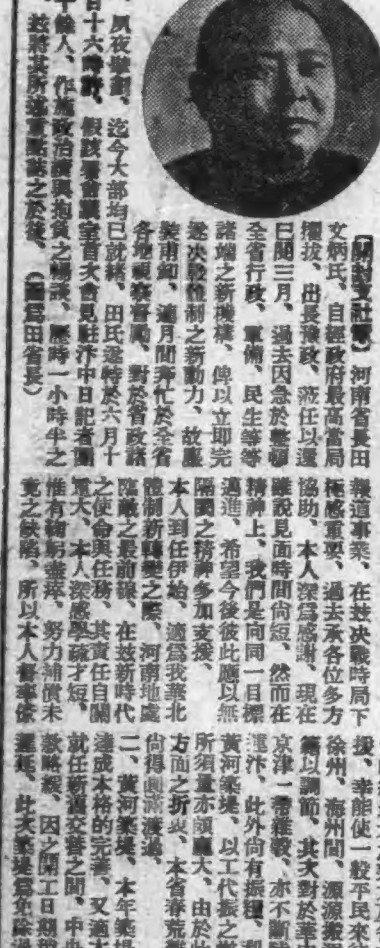 【開封支社電】河南省長田
文炳氏、自經政府最高當局
擢拔、出長豫政、蒞任以還
已閱三月、過去因急於整頓
全省行政、軍備、民生等等
諸端之新機構、俾以立即完
遂决戰體制之新動力、故
甫卸、連月間奔忙於全省
各地視察督勵、對於省政諸
夙夜擘劃、迄今大部均已就緒、田氏遂特於六月十
日十六時許、假該署會議室首次會見駐汴中日記者團
十餘人、作施政治績與抱負之暢談、歷時一小時半之
茲將其所述重點誌之於後、(圖爲田省長)
報道事業、在茲决戰時局下
極感重要、過去承各位多方
協助、本人深爲感謝、現在
雖說見面時間尙短、然而在
精神上、我們是向同一目標
邁進、希望今後彼此應以無
隔閡之精神多加支援、
本人到任伊始、適爲我華北
體制新轉變之際、河南地處
臨敵之最前線、在茲新時代
之使命與任務、其責任自關
重大、本人深感學疏才短、
惟有鞠躬盡瘁、努力補償未
竟之缺陷、所以本人督率
援、幸能使一般平民來
徐州、海州間、源源搬
籍以調節、其次對於華
京津一帶雜穀、亦不斷
運汴、此外尙有振糧、
黃河築堤、以工代振之
所須量亦頗龐大、由於
方面之折衷、本省春荒
尙得圓滿渡過、
二、黃河築堤、本年築堤
達成本格的完善、又適
就任新舊交替之間、中央
欵略緩、因之開工日期
遲延、此次築堤爲免除